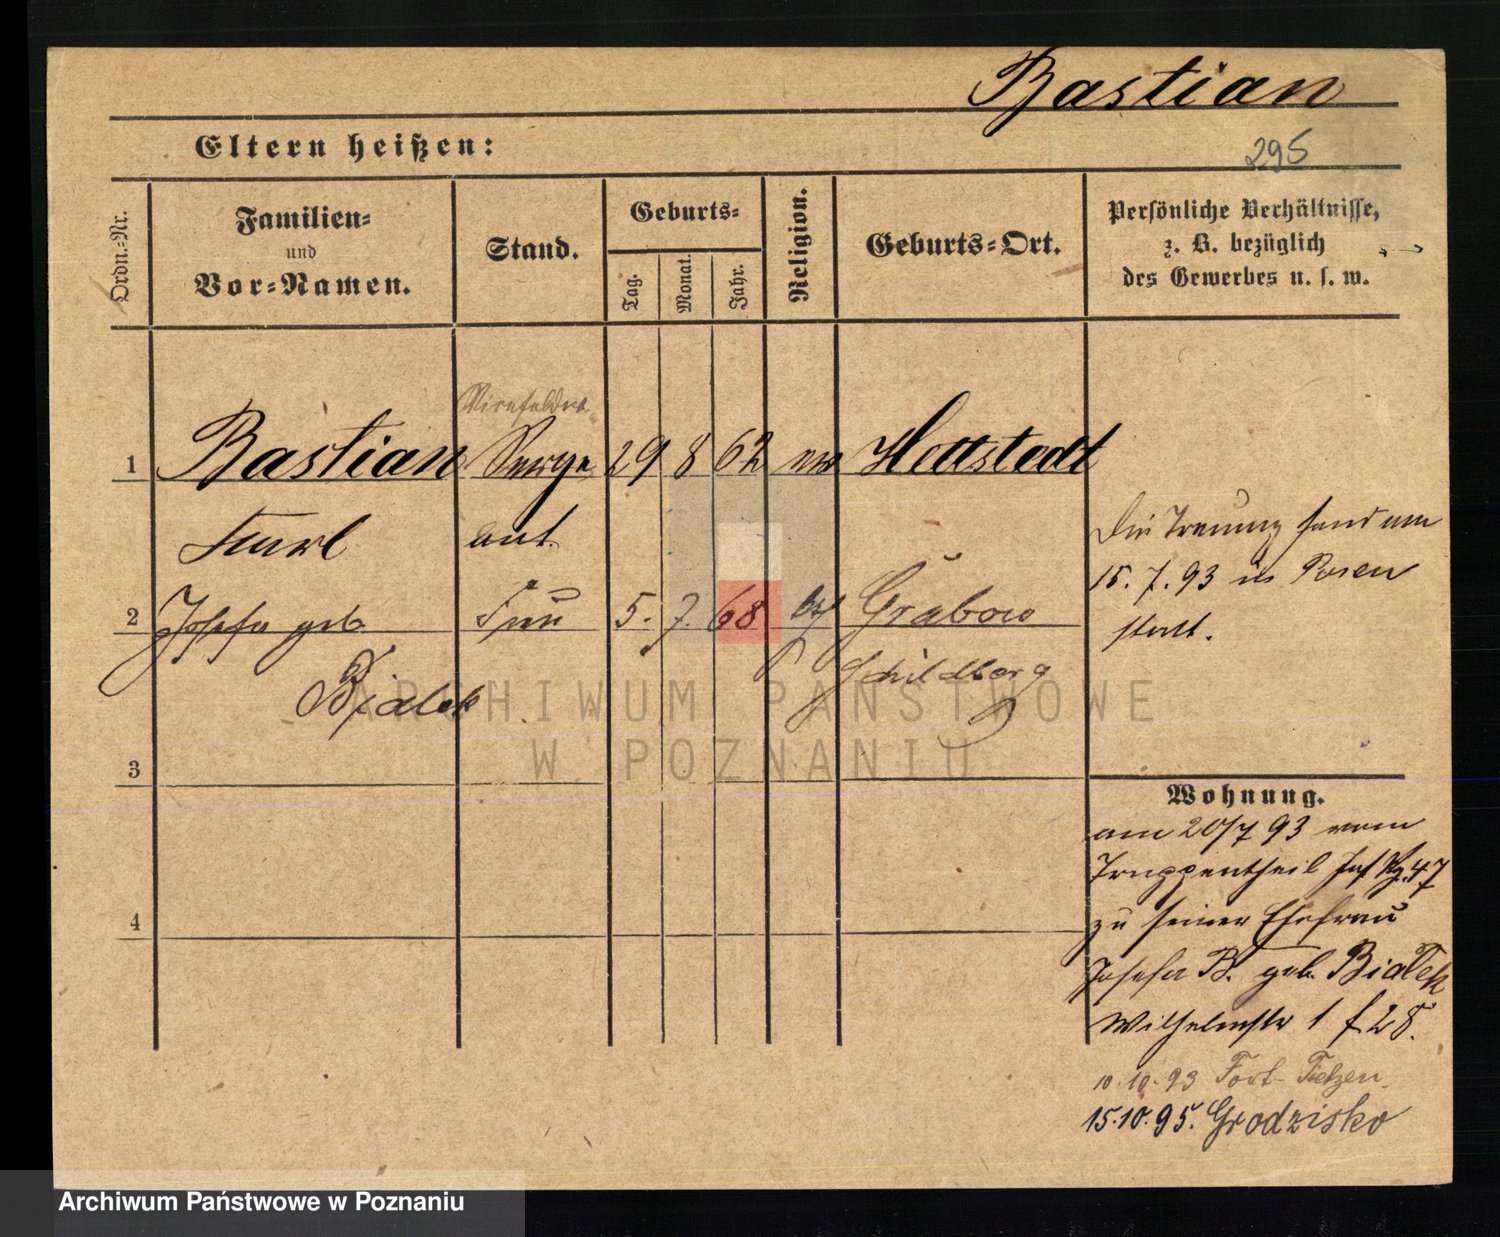 Bastian
Eltern heißen:
295
Ordn.=Nr.
Familien=
und
Vor=Namen.
Stand.
Geburts=
Tag.
Monat.
Jahr.
Religion.
Geburts=Ort.
Persönliche Verhältnisse,
z. B. bezüglich
des Gewerbes u. s. w.
1
Bastian
Serge
29
8
62
ev
Hettstedt
Karl
ant.
2
Josefa geb.
Frau
5.
7.
68
Grabow
Bialek
Schildberg
3
4
Die Trauung fand am
15. 7. 93 in Posen
statt.
Wohnung.
am 20/7 93 vom
Truppentheil Inf Rg. 47
zu seiner Ehefrau
Josefa B. geb. Białek
Wilhelmstr 1
10.10.93 Fort Tietzen
15.10.95. Grodzisko
ARCHIWUM PAŃSTWOWE
W POZNANIU
Archiwum Państwowe w Poznaniu